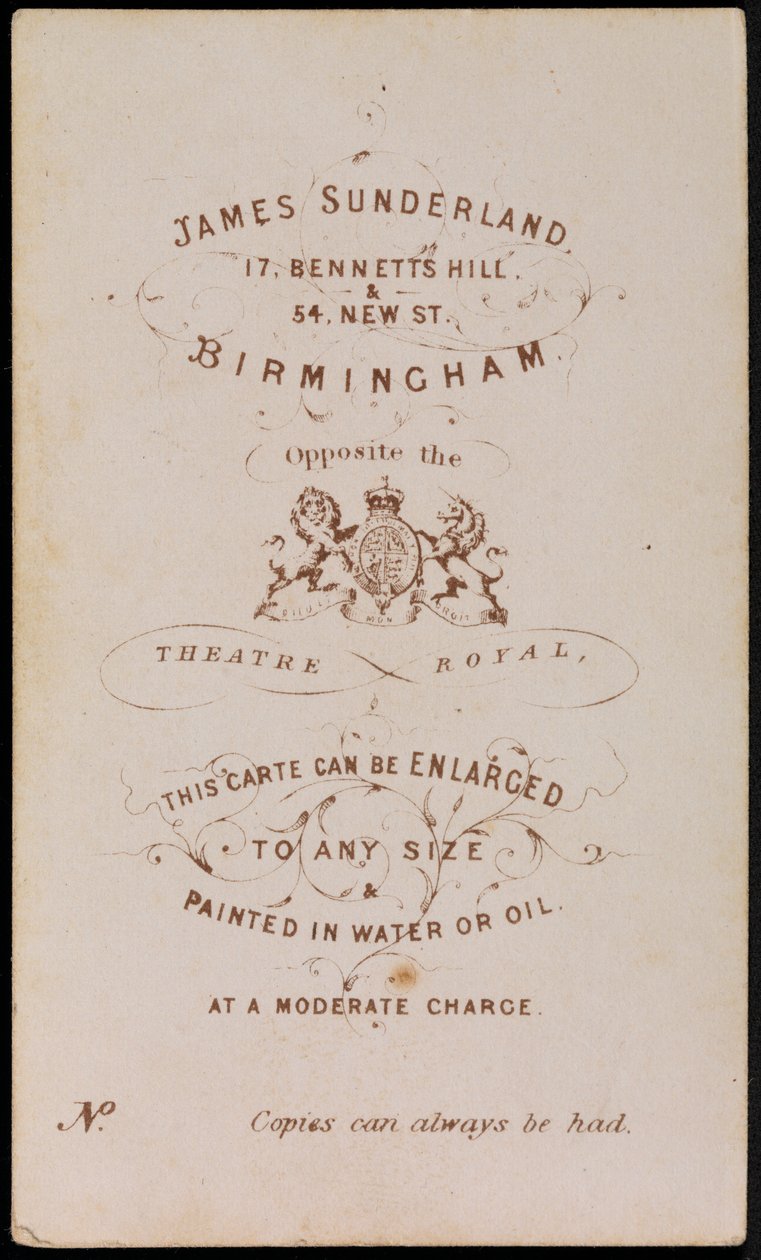 JAMES SUNDERLAND,
17, BENNETTS HILL,
&
54, NEW ST.
BIRMINGHAM.
Opposite the
DIEU ET MON DROIT
THEATRE ROYAL,
THIS CARTE CAN BE ENLARGED
TO ANY SIZE
&
PAINTED IN WATER OR OIL.
AT A MODERATE CHARGE.
No. Copies can always be had.